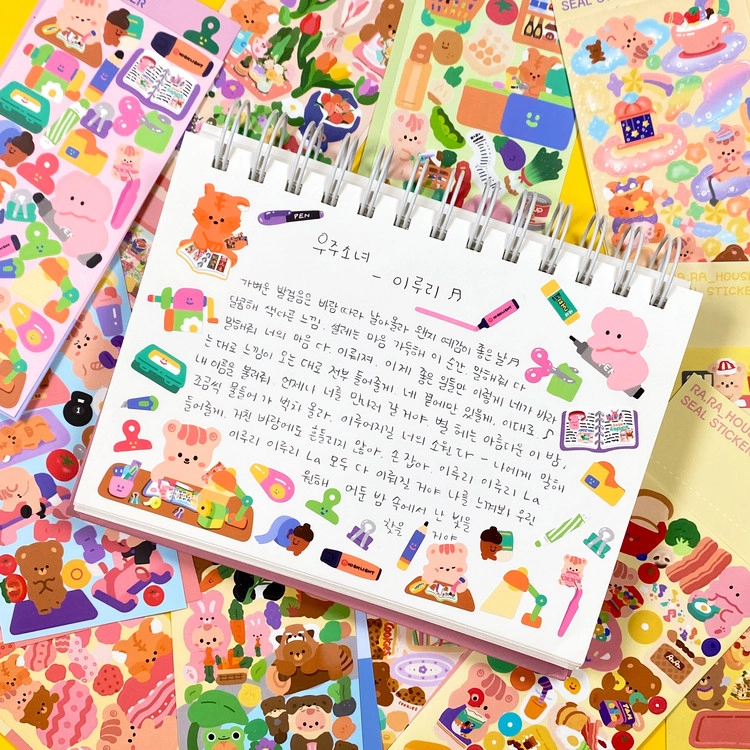 SEAL STICKER
PEN
우주소녀
- 이루리 ♬
가벼운 발걸음은 바람 따라 날아올라 왠지 예감이 좋은 날♬
달콤해 색다른 느낌. 설레는 마음 가득해 이 순간 말해줘 다
말해줘 너의 마음 다. 이뤄져. 이제 좋은 일들만 이렇게 네가 바라
는 대로 느낌이 오는 대로 전부 들어줄게. 네 곁에만 있을게. 이대로 ♪
내 이름을 불러줘. 언제나 너를 만나러 갈 거야. 별 헤는 아름다운 이 밤,
조금씩 물들어 가 벅차 올라. 이루어지길 너의 소원 다 - 나에게 말해
들어줄게. 거친 바람에도 흔들리지 않아. 손 잡아. 이루리 이루리 La
이루리 이루리 La 모두 다 이뤄질 거야 나를 느껴봐 우린
원해 어둔 밤 속에서 난 빛을
찾을 거야
HIGHLIGHT
RA.RA_HOUSE
SEAL STICKER
RA.RA_HOUSE
SEAL STICKER